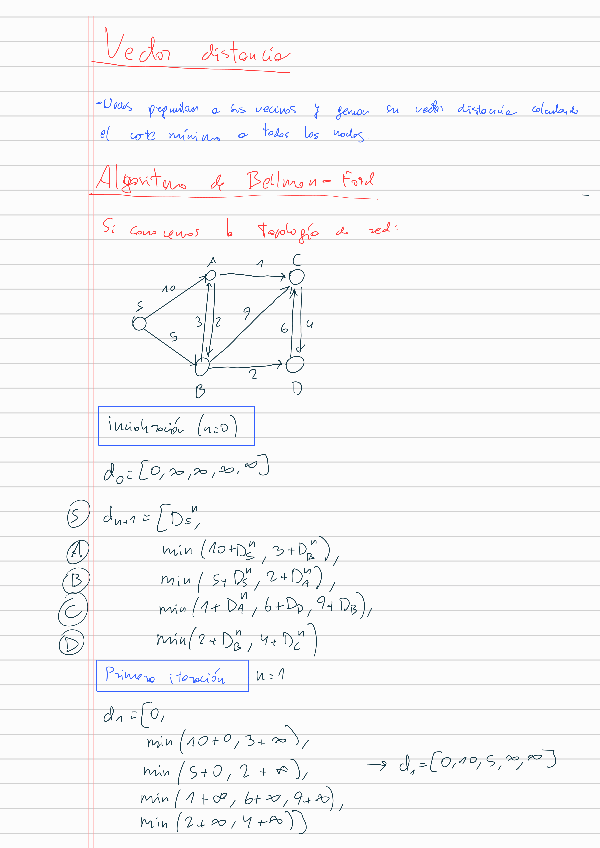 Vector distancia
-Unos preguntan a sus vecinos y generan su vector distancia calculando
el coste mínimo a todos los nodos
Algoritmo de Bellman-Ford
Si conocemos la topología de red:
A 1 C
10
S
3 2 9 6 4
5
2
B D
Inicialización (n=0)
d₀=[0,∞,∞,∞,∞]
S dₙ₊₁=[D_S^n,
A min(10+D_S^n, 3+D_B^n),
B min(5+D_S^n, 2+D_A^n),
C min(1+D_A^n, 6+D_D, 9+D_B),
D min(2+D_B^n, 4+D_C^n)
Primera iteración n=1
d₁=[0,
min(10+0, 3+∞),
min(5+0, 2+∞), → d₁=[0,10,5,∞,∞]
min(1+∞, 6+∞, 9+∞),
min(2+∞, 4+∞)]